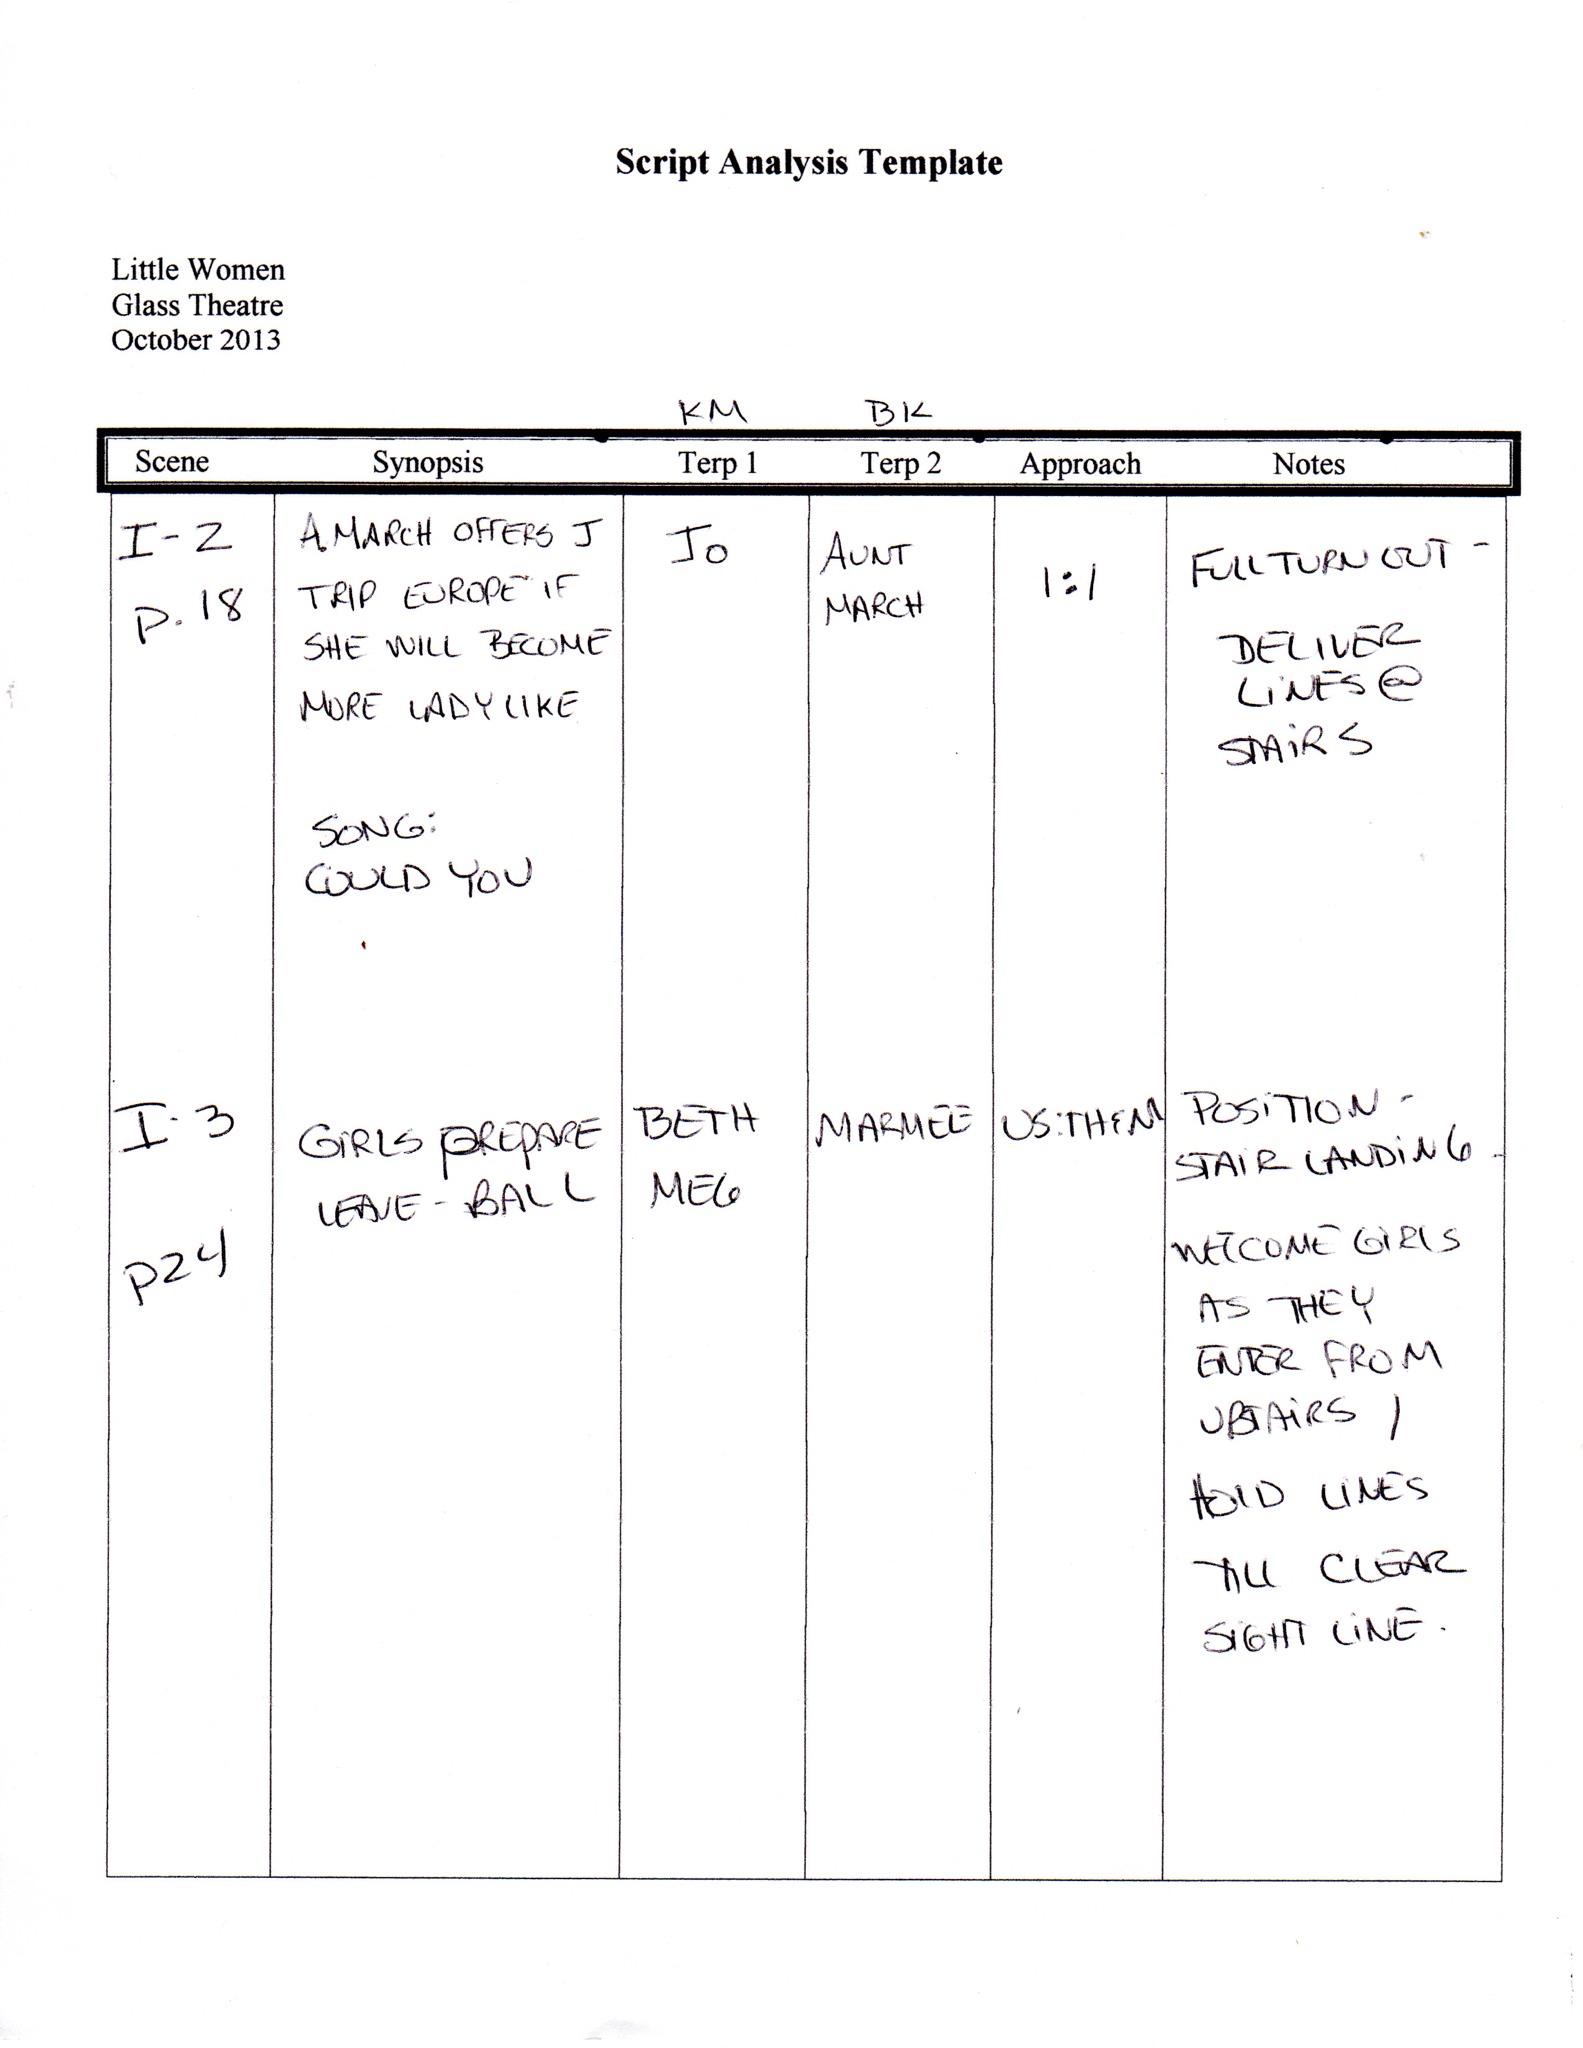 Script Analysis Template
Little Women
Glass Theatre
October 2013
KM BK
Scene Synopsis Terp 1 Terp 2 Approach Notes
I-2
P. 18
A. MARCH OFFERS J
TRIP EUROPE IF
SHE WILL BECOME
MORE LADYLIKE
SONG:
COULD YOU
JO
AUNT
MARCH
1:1
FULL TURN OUT -
DELIVER
LINES @
STAIRS
I-3
P24
GIRLS PREPARE
LEAVE - BALL
BETH
MEG
MARMEE
US:THEM
POSITION -
STAIR LANDING -
WELCOME GIRLS
AS THEY
ENTER FROM
UPSTAIRS /
HOLD LINES
TILL CLEAR
SIGHT LINE.